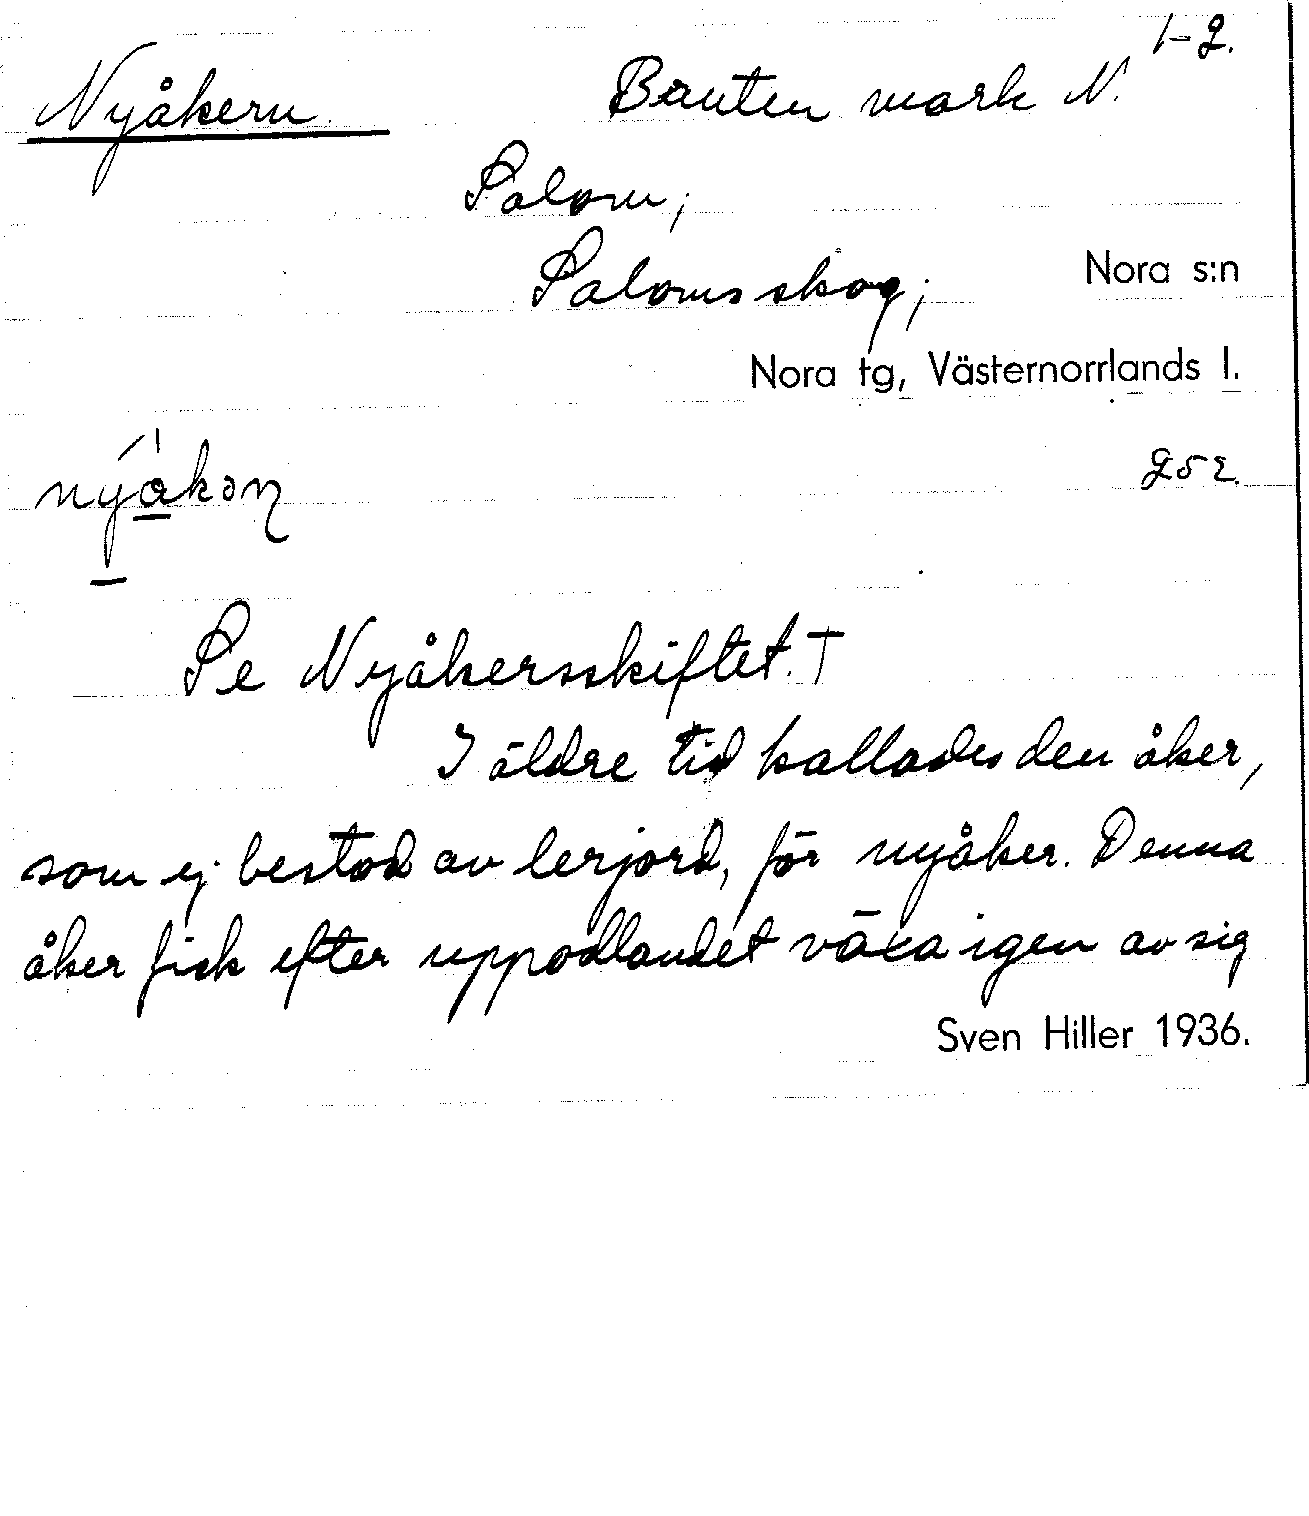 1-2.
Nyåkern. Brauten mark N.
Salom;
Saloms skog; Nora s:n
Nora tg, Västernorrlands l.
252.
Se Nyåkersskiftet. †
I äldre tid kallades den åker,
som ej bestod av lerjord, för nyåker. Denna
åker fick efter uppodlandet växa igen av sig
Sven Hiller 1936.